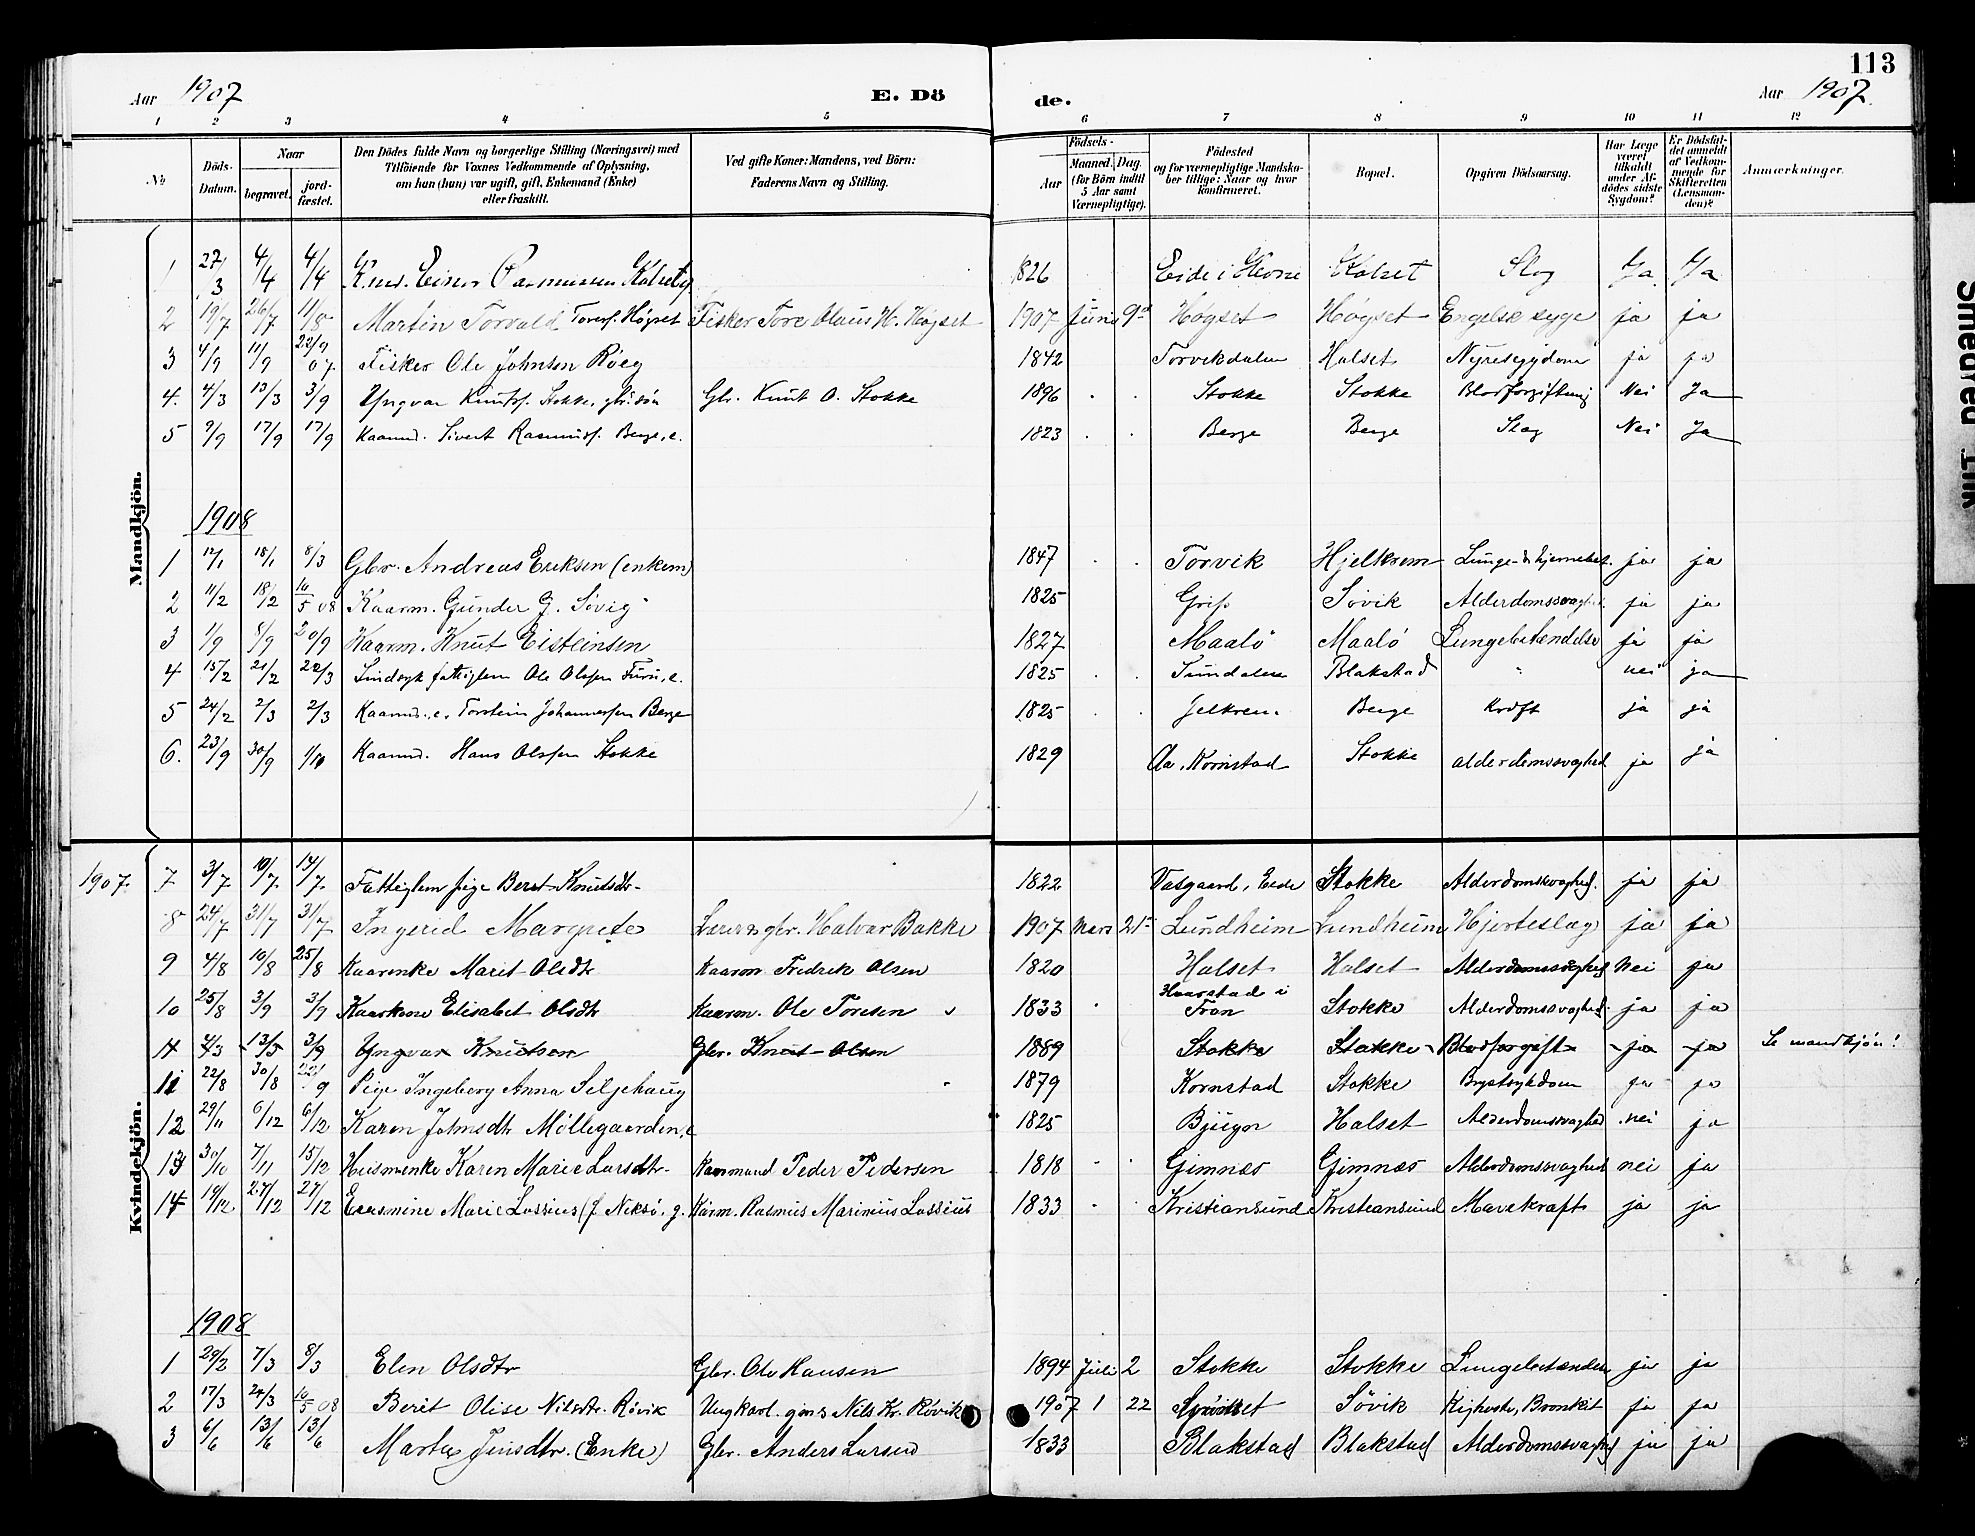 113
Aar 1907 E. Dö de. Aar 1907.
1 2 3 4 5 6 7 8 9 10 11 12
No
Döds-Datum.
Naar begravet. jordfæstet.
Den Dödes fulde Navn og borgerlige Stilling (Næringsvei) med Tilföiende for Voxnes Vedkommende af Oplysning, om han (hun) var ugift, gift, Enkemand (Enke) eller fraskilt.
Ved gifte Koner: Mandens, ved Börn: Faderens Navn og Stilling.
Födsels- Aar Maaned. Dag. (for Börn indtil 5 Aar samt Værnepligtige).
Födested og for værnepligtige Mandskaber tillige: Naar og hvor konfirmeret.
Bopæl.
Opgiven Dödsaarsag.
Har Læge været tilkaldt under Afdödes sidste Sygdom?
Er Dödsfaldet anmeldt af Vedkommende for Skifteretten (Lensmanden)?
Anmærkninger.
Mandkjön.
1 27/3 4/4 4/4 Einar Rasmussen Kolset 1826 Eide i Kolset Slag Ja Ja
2 19/7 26/7 11/8 Martin Torvald Toresf. Høgset Fisker Tore Olaus H. Høgset 1907 Juni 9d Høgset Høgset Engelsk syge ja ja
3 4/9 11/9 22/9 07 Fisker Ole Johnsen Røeg 1842 Torvikdalen Halset Nyresygdom ja ja
4. 4/3 13/3 3/9 Yngvar Knutsf. Stokke, gbr. søn Gbr. Knut O. Stokke 1896 Stokke Stokke Blodforgiftning Nei Ja
5 9/9 17/9 17/9 Kaarmd. Sivert Rasmusf. Berge, e. 1823 Berge Berge Slag Nei Ja
1908
1 12/1 18/1 8/3 Gbr. Andreas Eriksen (enkem) 1847 Torvik Hjelkrem Lunge- & hjernebet. ja ja
2 11/2 18/2 10/5 08 Kaarm. Gunder G. Søvig 1825 Grip Søvik Alderdomssvaghed ja ja
3 1/9 8/9 20/9 Kaarm. Knut Eisteinsen 1827 Maalø Maalø Lungebetændelse ja ja
4 15/2 21/2 22/3 Sindsyk fattiglem Ole Olsen Furu, e. 1825 Sundalen Blakstad " nei ja
5 24/2 2/3 2/3 Kaarmd., e. Torstein Johannessen Berge 1825 Jelkrem Berge Kræft ja ja
6. 23/9 30/9 1/10 Kaarmd. Hans Olsen Stokke 1829 Aa, Kornstad Stokke alderdomssvaghed ja ja
Kvindekjön.
1907. 7 3/7 10/7 14/7 Fattiglem pige Beret Knutsdtr. 1822 Vasgaard, Eide Stokke Alderdomssvaghed. ja ja
8 24/7 31/7 31/7 Ingerid Margrete Lærer og gbr. Halvar Bakke 1907 Mars 21 Lundheim Lundheim Hjerteslag ja ja
9 4/8 10/8 25/8 Kaarenke Marit Olsdtr Kaarm. Fredrik Olsen 1820 Halset Halset Alderdomssvaghed nei ja
10 25/8 3/9 3/9 Kaarkone Elisabet Olsdtr Kaarm. Ole Toresen 1833 Hvarstad i Fron Stokke Alderdomssvaghed. ja ja
11 4/3 13/3 3/9 Yngvar Knutsen Gbr. Knut Olsen 1889 Stokke Stokke Blodforgift ja ja Se mandkjön!
11 22/8 30/8 22/9 Pige Ingeberg Anna Seljehaug 1879 Kornstad Stokke Brystsykdom ja ja
12 29/11 6/12 6/12 Karen Johnsdtr Møllegaarden, e 1825 Bjugn Halset Alderdomssvaghed nei ja
13 30/10 7/11 15/12 Husmenke Karen Marie Larsdtr. Kaarmand Peder Pedersen 1818 Gimnæs Gimnæs Alderdomssvaghed nei ja
14 19/12 27/12 27/12 Erasmine Marie Lossius (f. Neksø. g. Kårm. Rasmus Marinius Lossius 1833 Kristiansund Kristiansund Mavekræft ja ja
1908
1 29/2 7/3 8/3 Elen Olsdtr Gbr. Ole Hansen 1894 Juli 2 Stokke Stokke Lungebetænden ja ja
2 17/3 24/3 10/5 08 Berit Olise Nilsdtr. Røvik Ungkarl. Nils Kr. Røvik 1907 1 22 Søvik Kighoste, Bronkit ja ja
3 6/6 13/6 13/6 Marta Jensdtr. (Enke) Gbr. Anders Larsen 1833 Blakstad Blakstad Alderdomssvaghed ja ja